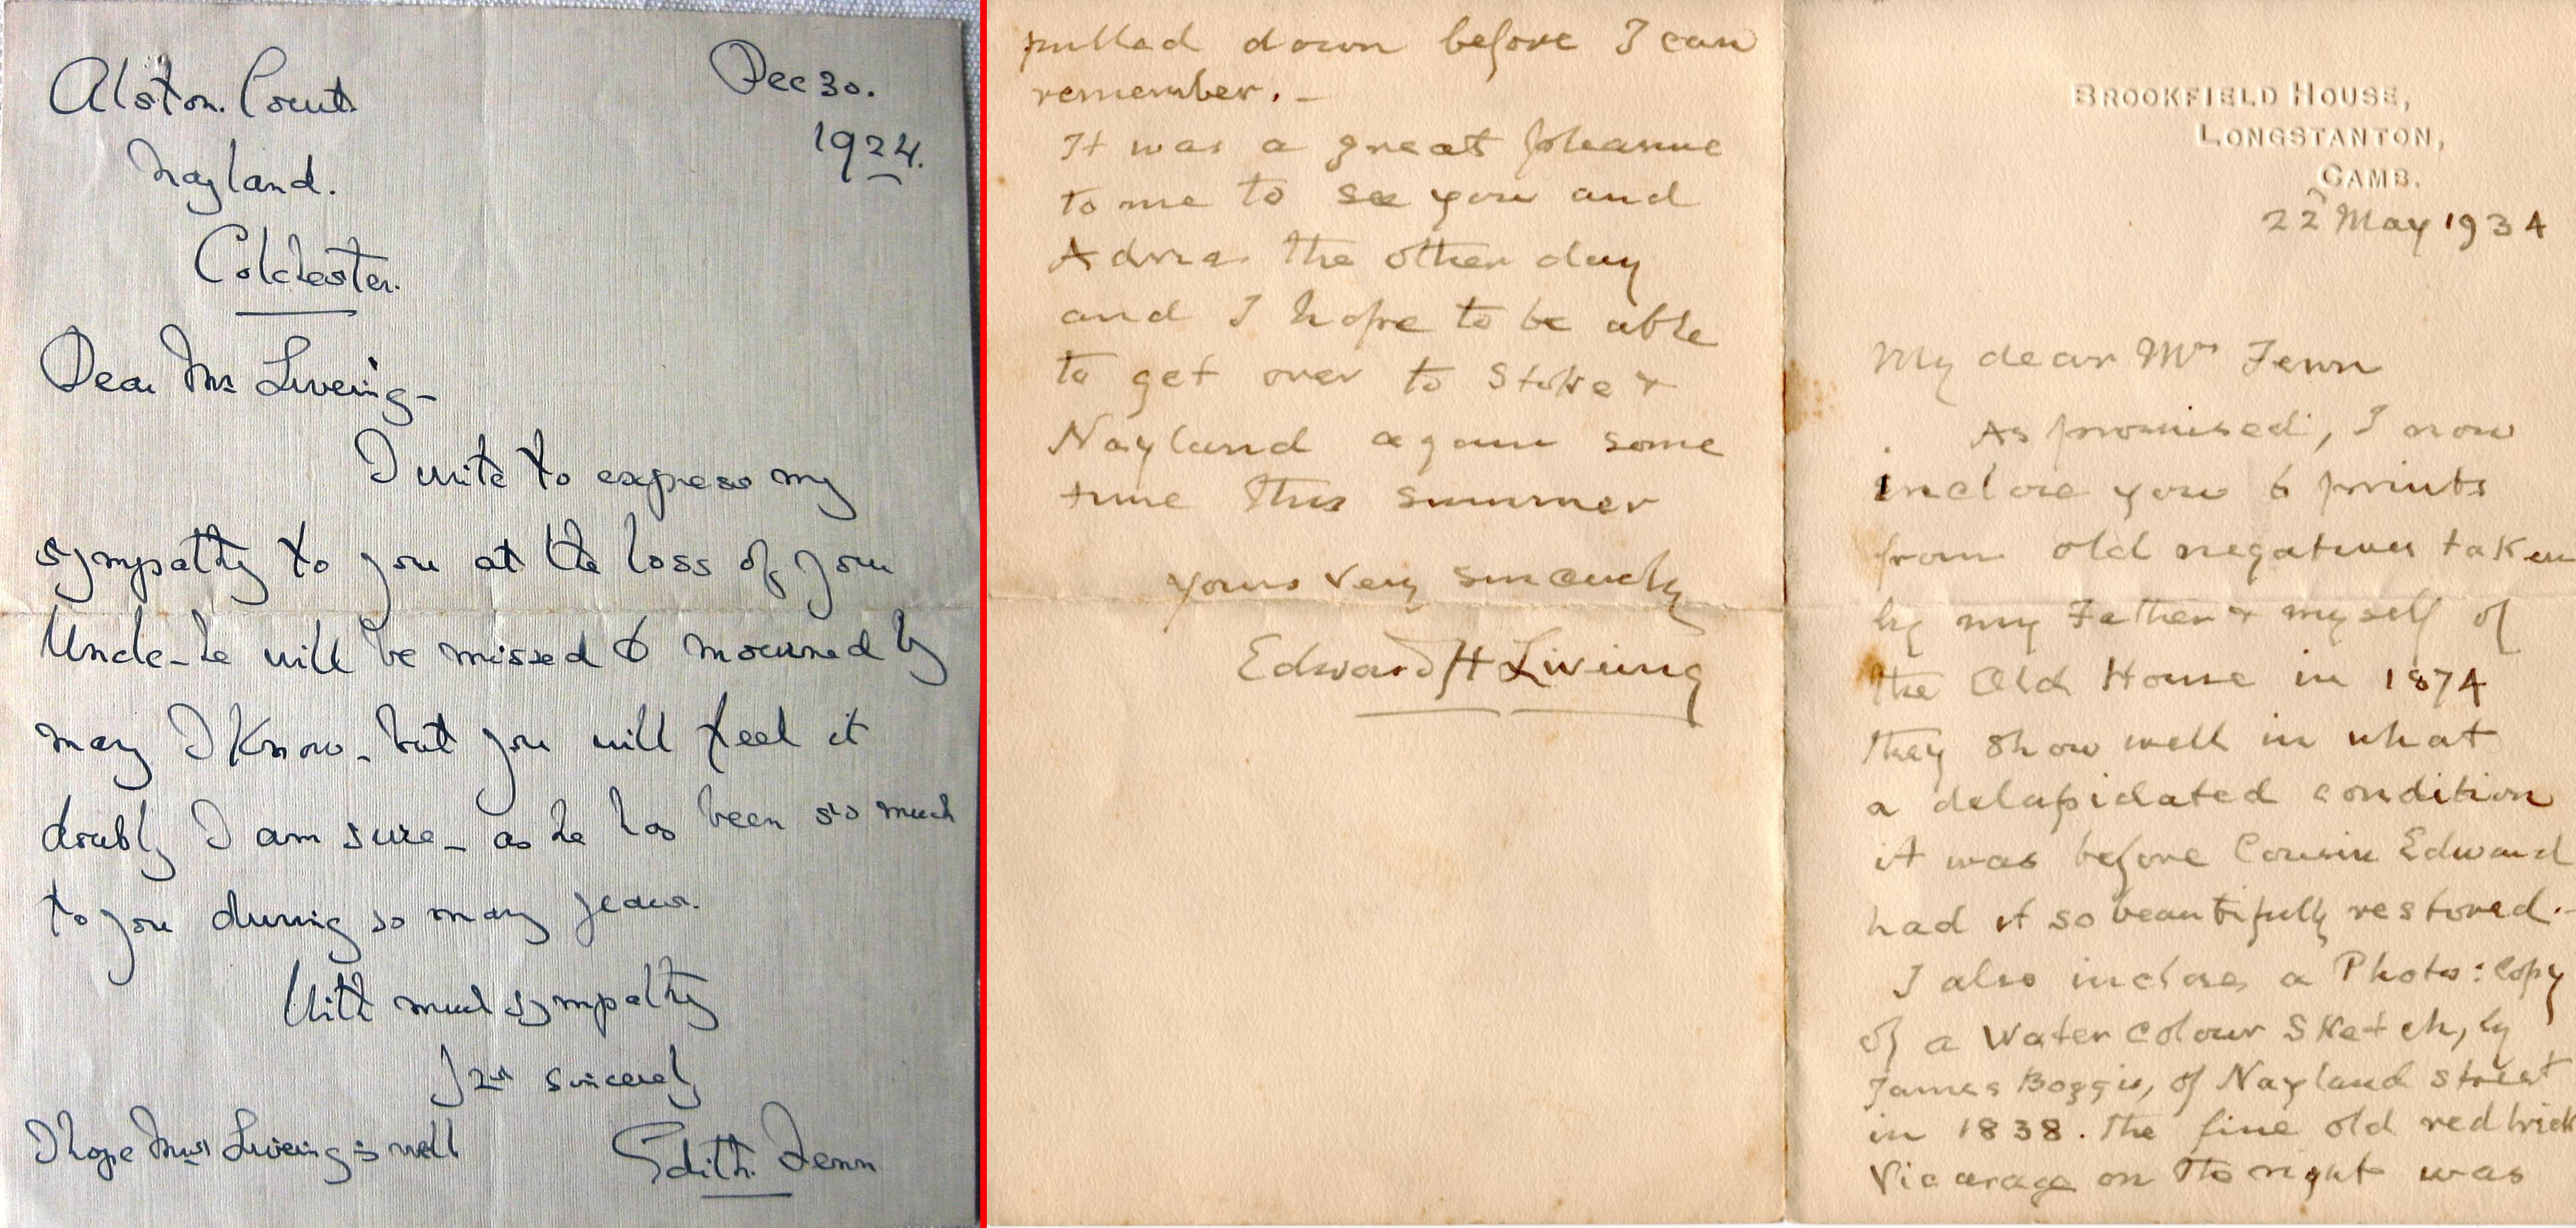 Alston Court
Nayland.
Colchester.
Dec 30.
1924.
Dear Mr Liveing -
I write to express my
sympathy to you at the loss of your
Uncle - he will be missed & mourned by
many I know - but you will feel it
doubly I am sure - as he has been so much
to you during so many years.
With much sympathy
Yrs sincerely
Edith Fenn
I hope Mrs Liveing is well
BROOKFIELD HOUSE,
LONGSTANTON,
CAMB.
22 May 1934
My dear Mrs Fenn
As promised, I now
inclose you 6 prints
from old negatives taken
by my Father & myself of
the Old House in 1874
they show well in what
a delapidated condition
it was before Cousin Edward
had it so beautifully restored. -
I also inclose a Photo: Copy
of a Water Colour Sketch, by
James Boggis, of Nayland street
in 1838. The fine old red brick
Vicarage on the right was
pulled down before I can
remember. -
It was a great pleasure
to me to see you and
the other day
and I hope to be able
to get over to Stoke &
Nayland again some
time this summer
Yours very sincerely
Edward H Liveing